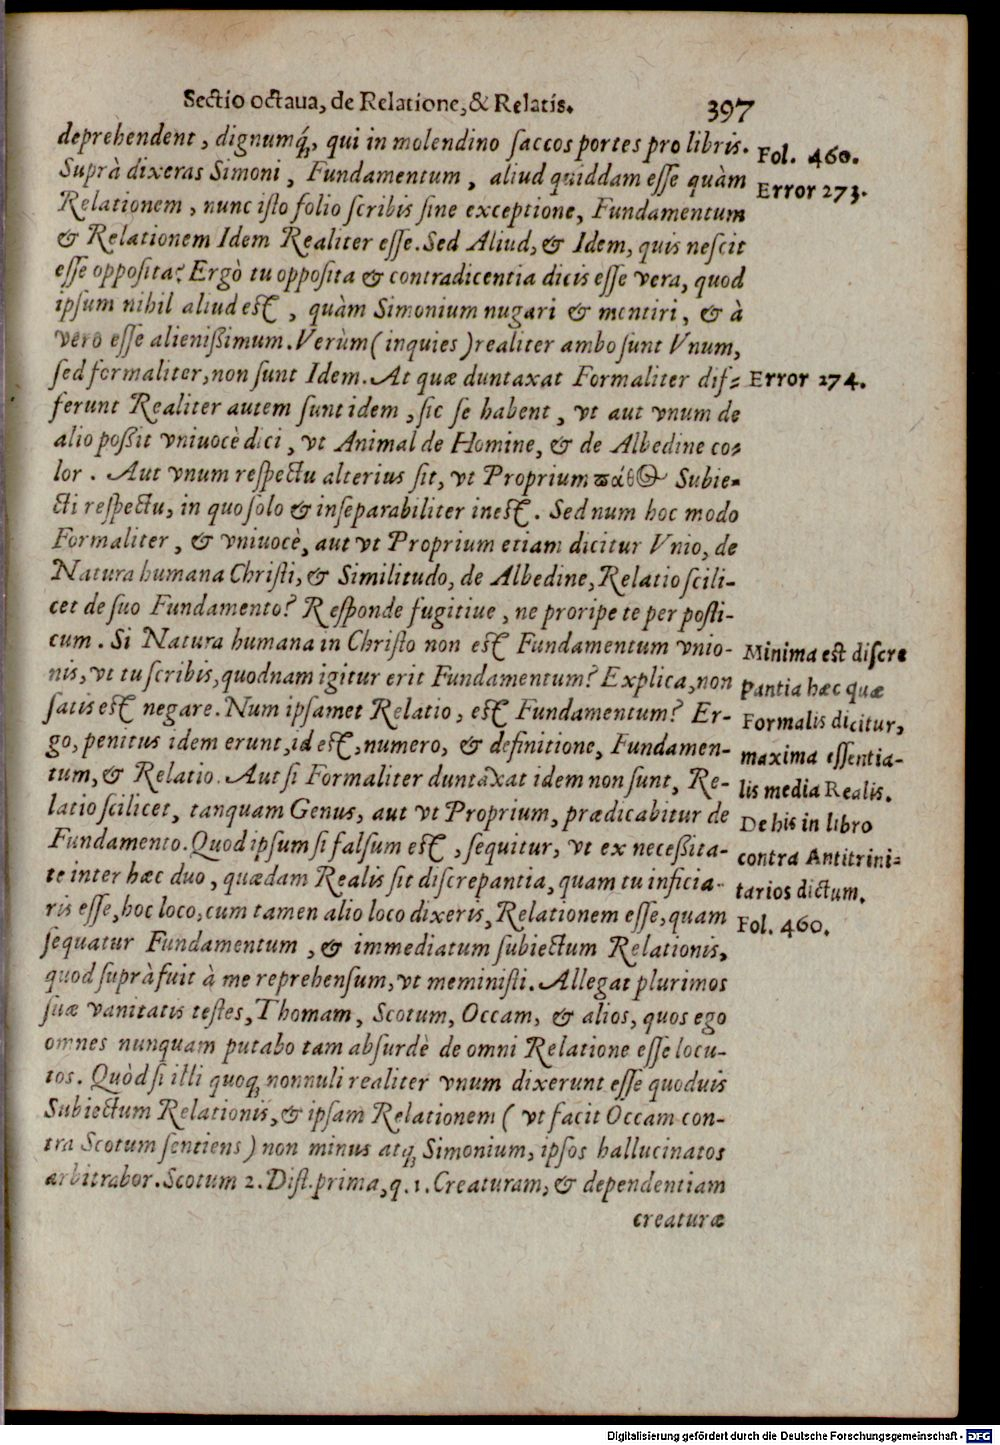 Sectio octaua, de Relatione, & Relatis. 397
deprehendent, dignumq́;, qui in molendino saccos portes pro libris.
Fol. 460.
Suprà dixeras Simoni, Fundamentum, aliud quiddam esse quàm
Error 273.
Relationem, nunc isto folio scribis sine exceptione, Fundamentum
& Relationem Idem Realiter esse. Sed Aliud, & Idem, quis nescit
esse opposita? Ergò tu opposita & contradicentia dicis esse vera, quod
ipsum nihil aliud est, quàm Simonium nugari & mentiri, & à
vero esse alienißimum. Verùm (inquies) realiter ambo sunt Vnum,
sed formaliter, non sunt Idem. At quæ duntaxat Formaliter dif-
Error 274.
ferunt Realiter autem sunt idem, sic se habent, vt aut vnum de
alio poßit vniuocè dici, vt Animal de Homine, & de Albedine co-
lor. Aut vnum respectu alterius sit, vt Proprium πάθος Subie-
cti respectu, in quo solo & inseparabiliter inest. Sed num hoc modo
Formaliter, & vniuocè, aut vt Proprium etiam dicitur Vnio, de
Natura humana Christi, & Similitudo, de Albedine, Relatio scili-
cet de suo Fundamento? Responde fugitiue, ne proripe te per posti-
cum. Si Natura humana in Christo non est Fundamentum vnio-
nis, vt tu scribis, quodnam igitur erit Fundamentum? Explica, non
satis est negare. Num ipsamet Relatio, est Fundamentum? Er-
go, penitus idem erunt, id est, numero, & definitione, Fundamen-
tum, & Relatio. Aut si Formaliter duntaxat idem non sunt, Re-
latio scilicet, tanquam Genus, aut vt Proprium, prædicabitur de
Fundamento. Quod ipsum si falsum est, sequitur, vt ex neceßita-
te inter hæc duo, quædam Realis sit discrepantia, quam tu inficia-
ris esse, hoc loco, cum tamen alio loco dixeris, Relationem esse, quam
sequatur Fundamentum, & immediatum subiectum Relationis,
quod suprà fuit à me reprehensum, vt meministi. Allegat plurimos
suæ vanitatis testes, Thomam, Scotum, Occam, & alios, quos ego
omnes nunquam putabo tam absurdè de omni Relatione esse locu-
tos. Quòd si illi quoq; nonnuli realiter vnum dixerunt esse quoduis
Subiectum Relationis, & ipsam Relationem (vt facit Occam con-
tra Scotum sentiens) non minus atq; Simonium, ipsos hallucinatos
arbitrabor. Scotum 2. Dist. prima, q. 1. Creaturam, & dependentiam
creaturæ
Minima est discre
pantia hæc quæ
Formalis dicitur,
maxima essentia-
lis media Realis.
De his in libro
contra Antitrini-
tarios dictum.
Fol. 460.
Digitalisierung gefördert durch die Deutsche Forschungsgemeinschaft - DFG